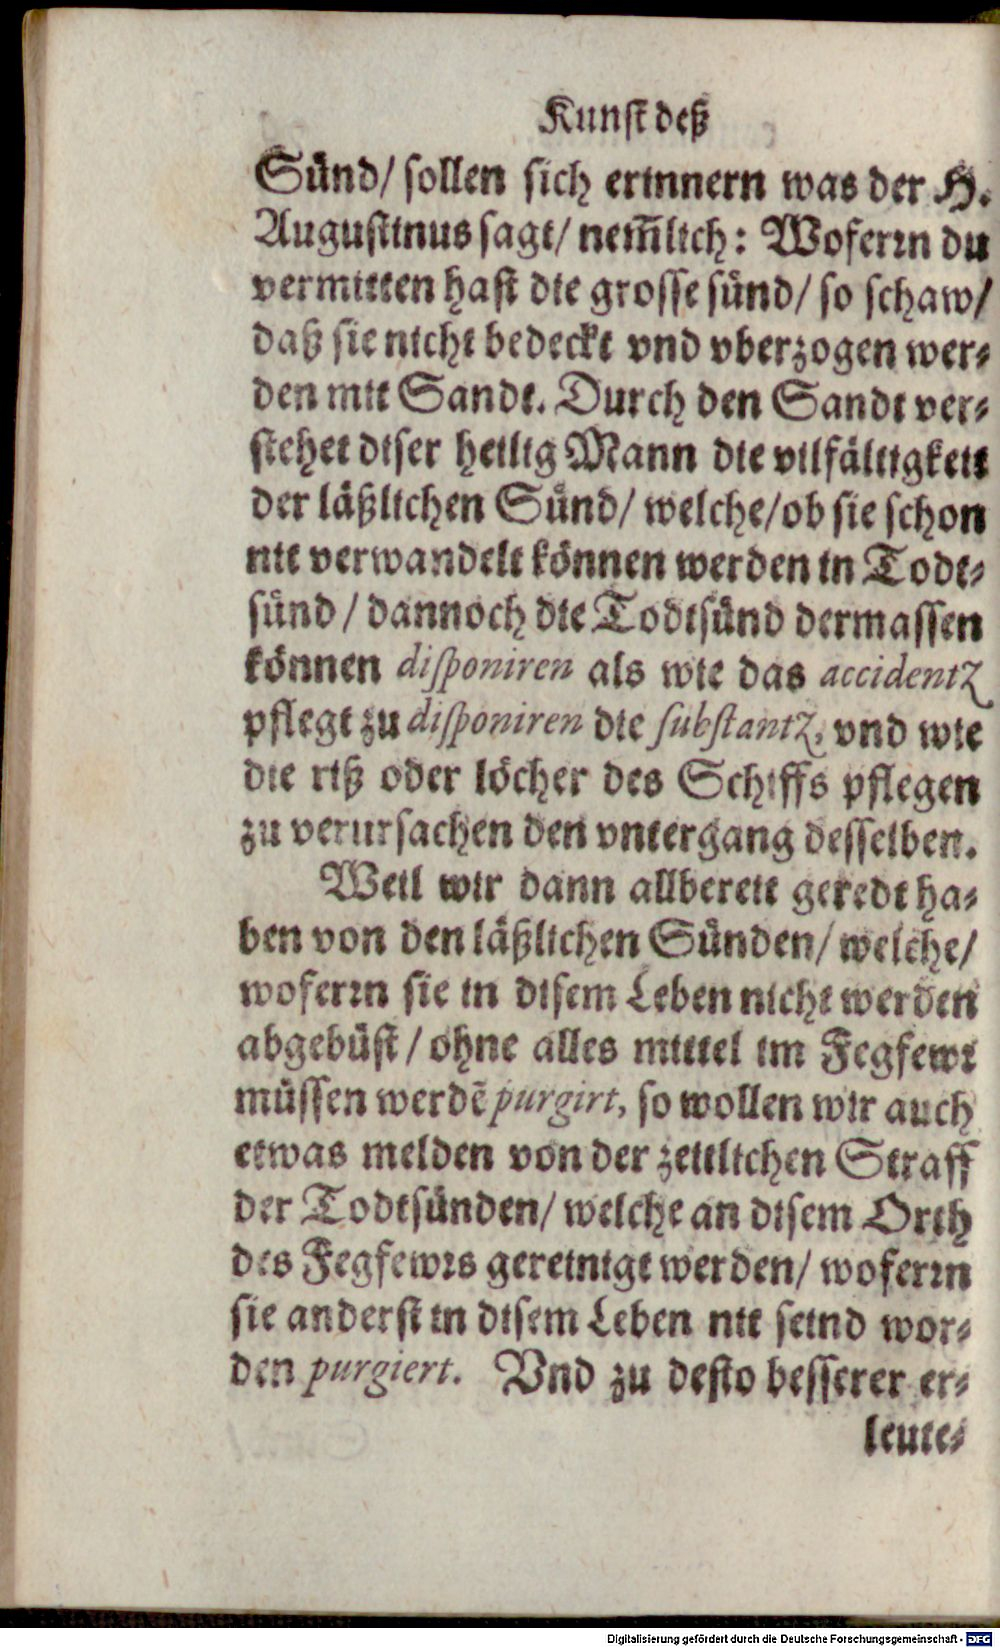 Kunst deß
Sünd/ sollen sich erinnern was der H.
Augustinus sagt/ nem̃lich: Woferrn du
vermitten hast die grosse sünd/ so schaw/
daß sie nicht bedeckt vnd vberzogen wer-
den mit Sandt. Durch den Sandt ver-
stehet diser heilig Mann die vilfältigkeit
der läßlichen Sünd/ welche/ ob sie schon
nit verwandelt können werden in Todt-
sünd/ dannoch die Todtsünd dermassen
können disponiren als wie das accidentz
pflegt zu disponiren die substantz, vnd wie
die riß oder löcher des Schiffs pflegen
zu verursachen den vntergang desselben.
Weil wir dann allbereit geredt ha-
ben von den läßlichen Sünden/ welche/
woferrn sie in disem Leben nicht werden
abgebüst/ ohne alles mittel im Fegfewr
müssen werdẽ purgirt, so wollen wir auch
etwas melden von der zeitlichen Straff
der Todtsünden/ welche an disem Orth
des Fegfewrs gereinigt werden/ woferrn
sie anderst in disem Leben nit seind wor-
den purgiert. Vnd zu desto besserer er-
leute-
Digitalisierung gefördert durch die Deutsche Forschungsgemeinschaft - DFG